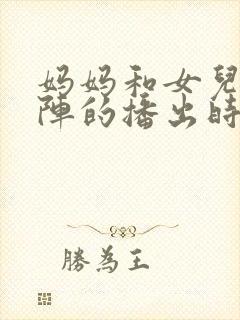 妈妈和女兒
陣的播出時
勝為王